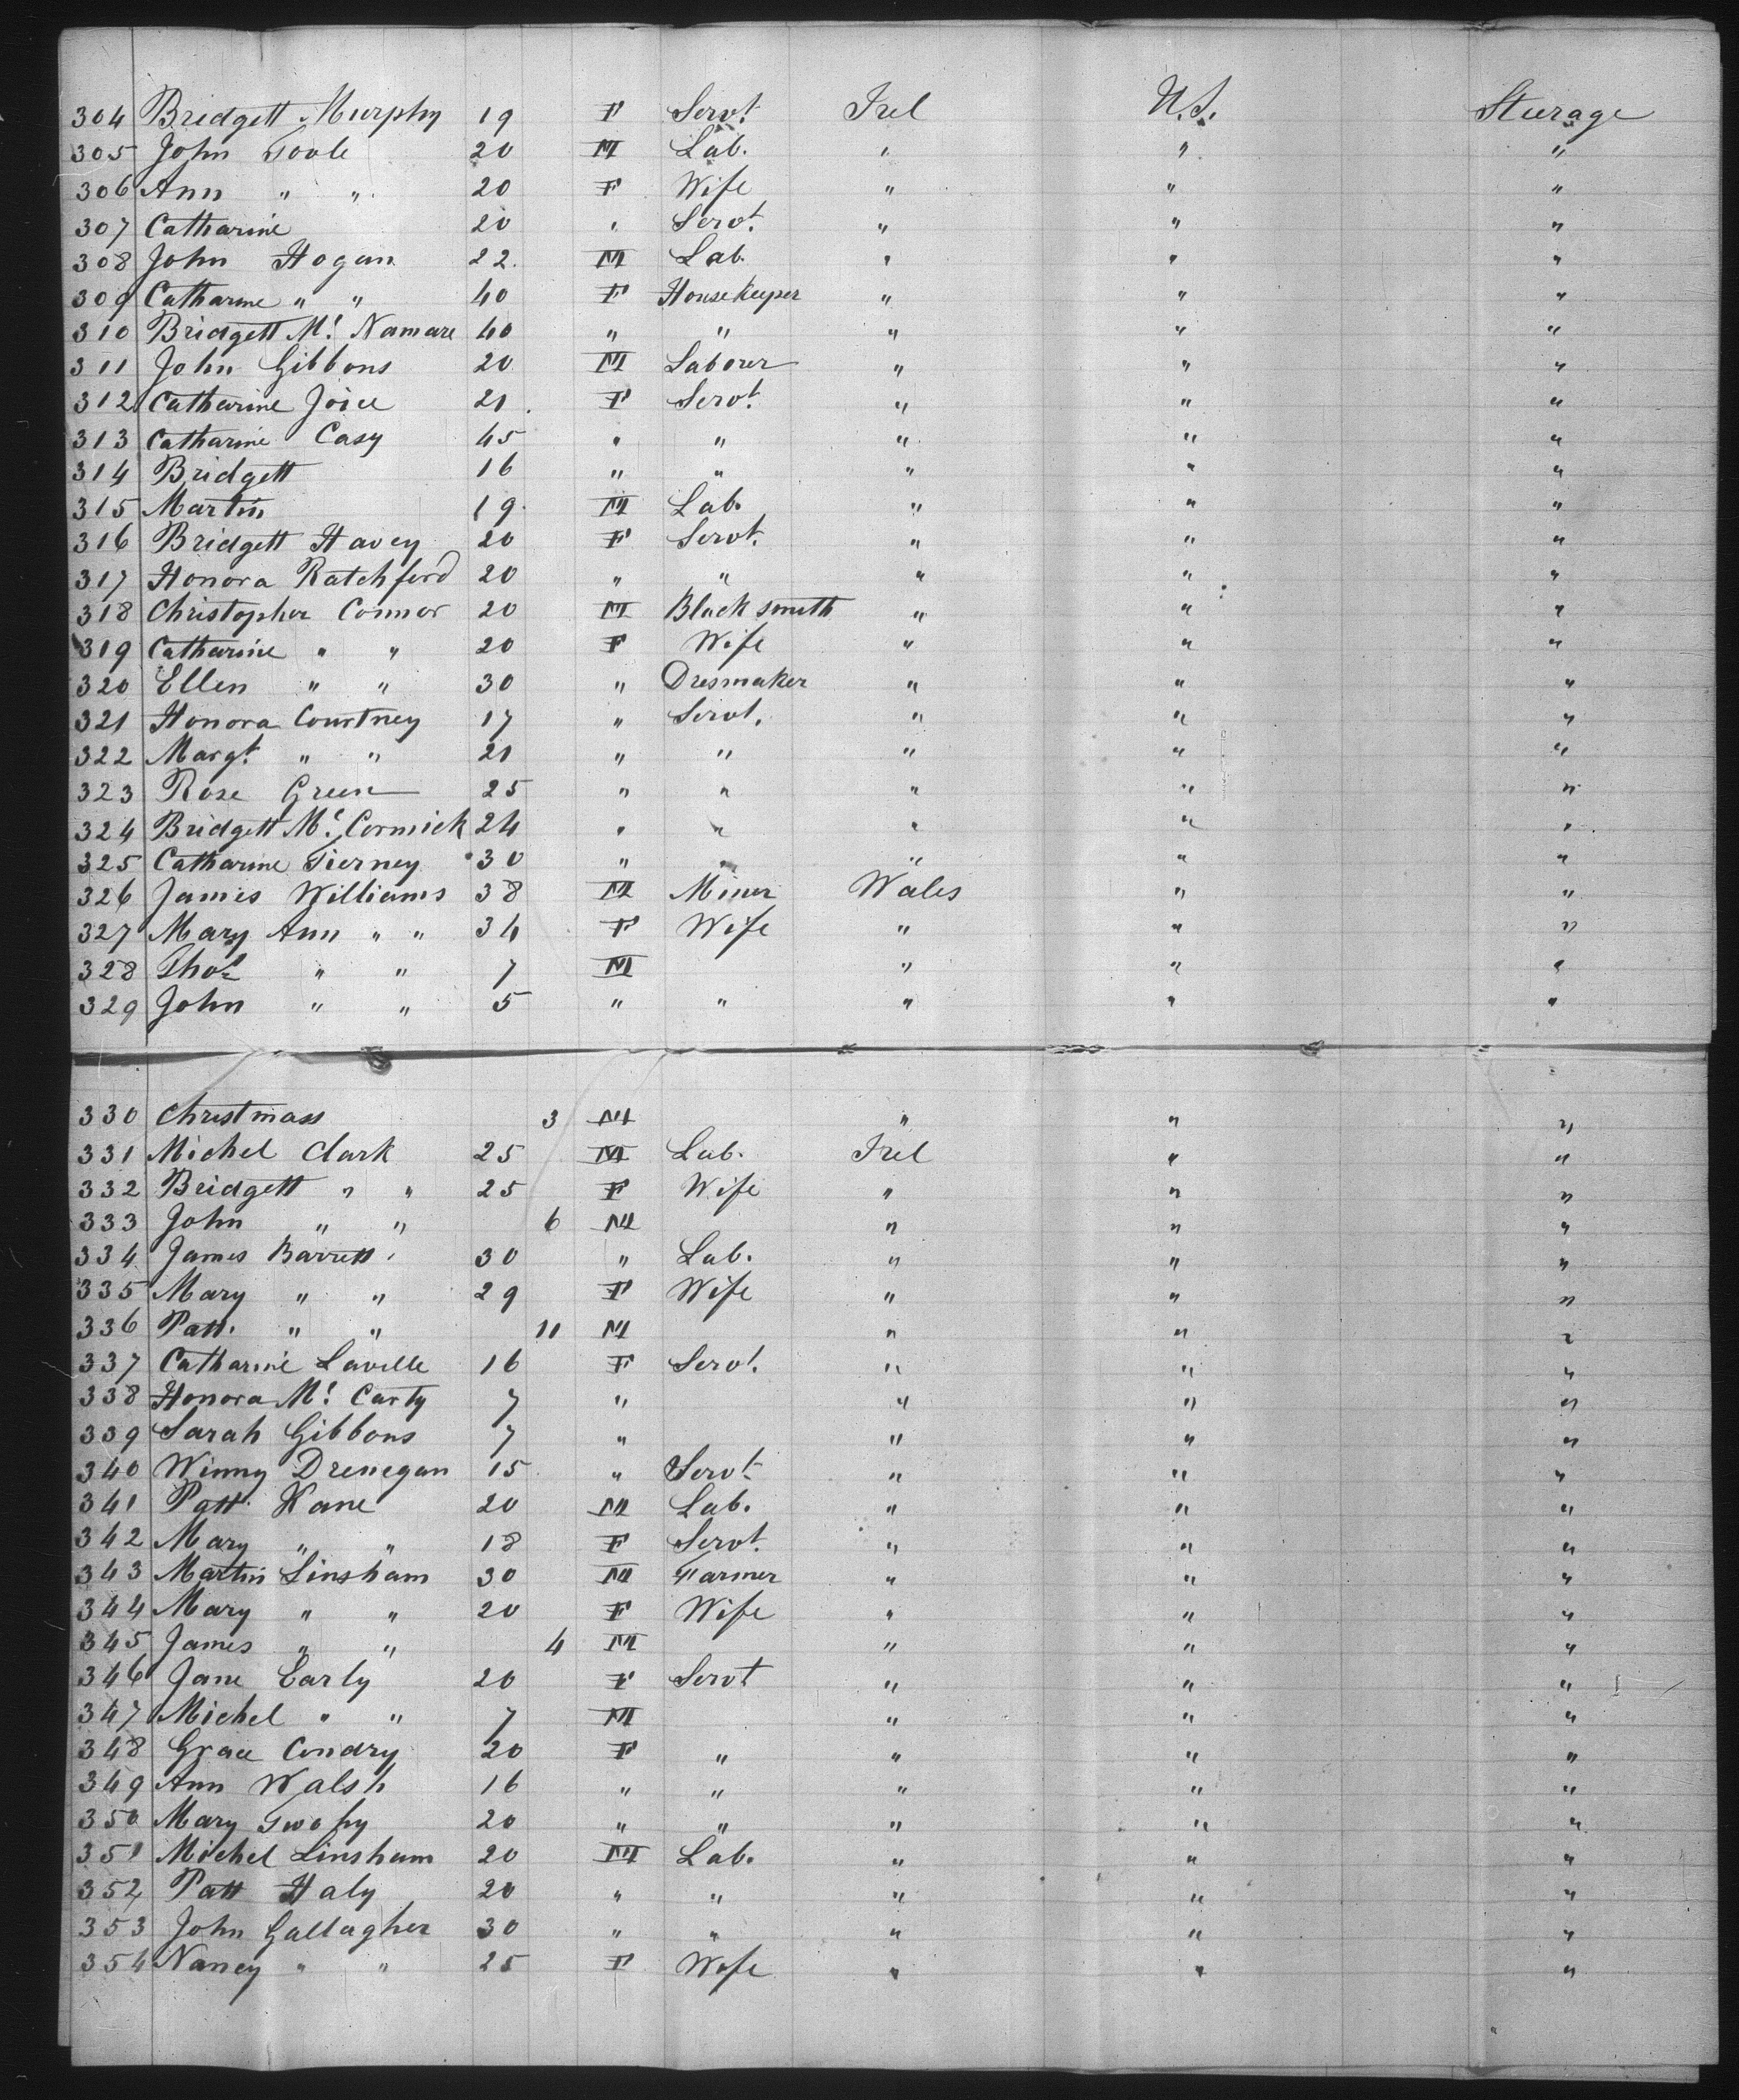 304 Bridgett Murphy 19 F Servt. Irel U.S. Steerage
305 John Toole 20 M Lab. " " "
306 Ann " " 20 F Wife " " "
307 Catharine 20 " Servt. " " "
308 John Hogan 22. M Lab. " " "
309 Catharine " " 40 F Housekeeper " " "
310 Bridgett Mc. Namare 40 " " " " "
311 John Gibbons 20 M Laborer " " "
312 Catharine Joice 21. F Servt. " " "
313 Catharine Casy 45 " " " " "
314 Bridgett 16 " " " " "
315 Martin 19. M Lab. " " "
316 Bridgett Havey 20 F Servt. " " "
317 Honora Ratchford 20 " " " " "
318 Christopher Connor 20 M Blacksmith " " "
319 Catharine " " 20 F Wife " " "
320 Ellen " " 30 " Dresmaker " " "
321 Honora Courtney 17 " Servt. " " "
322 Margt. " " 21 " " " " "
323 Rose Green 25 " " " " "
324 Bridgett Mc. Cormick 24 " " " " "
325 Catharine Tierney 30 " " " " "
326 James Williams 38 M Miner Wales " "
327 Mary Ann " " 34 F Wife " " "
328 Thos " " 7 M " " "
329 John " " 5 " " " " "
330 Christmass 3 M " " "
331 Michel Clark 25 M Lab. Irel " "
332 Bridgett " " 25 F Wife " " "
333 John " " 6 M " " "
334 James Barrett 30 " Lab. " " "
335 Mary " " 29 F Wife " " "
336 Patt. " " 11 M " " "
337 Catharine Lavelle 16 F Servt. " " "
338 Honora Mc. Carty 7 " " " "
339 Sarah Gibbons 7 " " " "
340 Winny Drenegan 15 " Servt. " " "
341 Patt. Kane 20 M Lab. " " "
342 Mary " " 18 F Servt. " " "
343 Martin Linsham 30 M Farmer " " "
344 Mary " " 20 F Wife " " "
345 James " " 4 M " " "
346 Jane Early 20 F Servt " " "
347 Michel " " 7 M " " "
348 Grace Condry 20 F " " " "
349 Ann Walsh 16 " " " " "
350 Mary 20 " " " " "
351 Michel Linsham 20 M Lab. " " "
352 Patt Haly 20 " " " " "
353 John Gallagher 30 " " " " "
354 Nancy " " 25 F Wife " " "